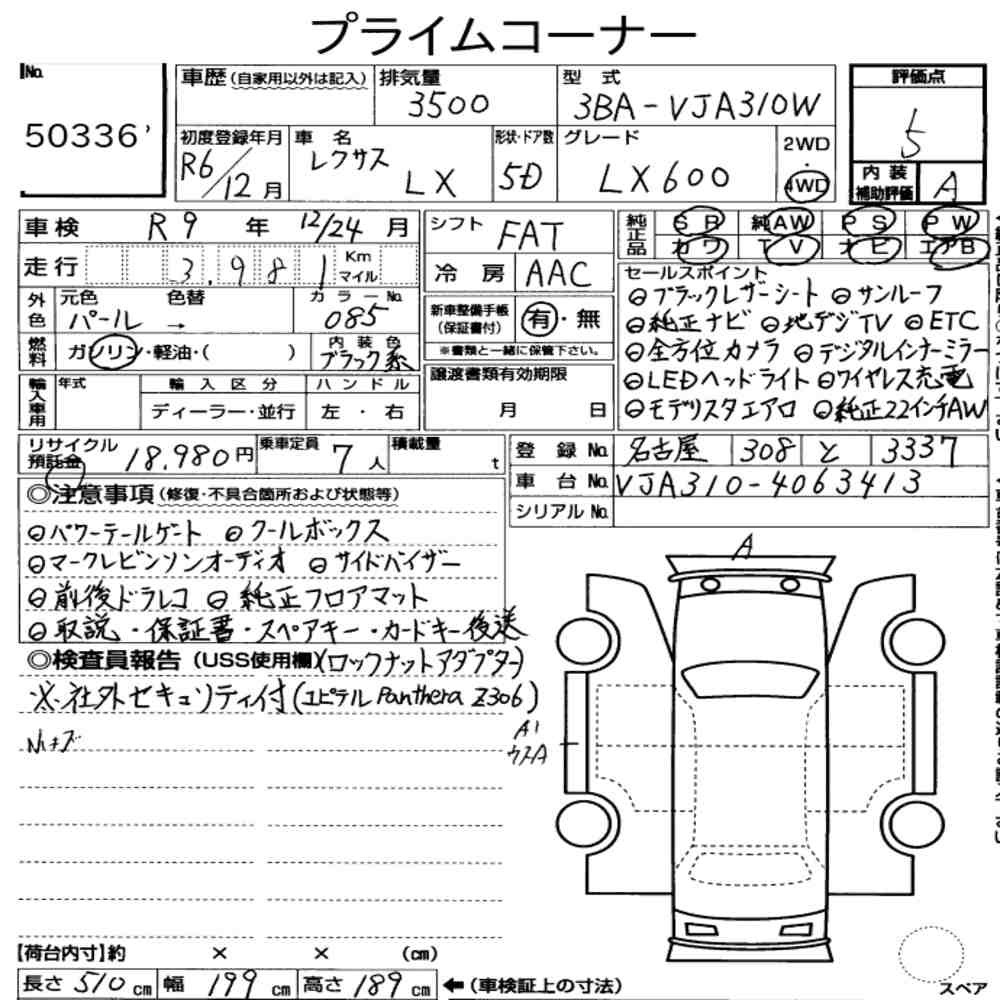 プライムコーナー
No.
50336
車歴 (自家用以外は記入)
排気量
3500
型式
3BA-VJA310W
評価点
5
初度登録年月
R6/12月
車名
レクサス LX
形状・ドア数
5D
グレード
LX600
2WD
・
4WD
内装
補助評価
A
車検 R9年 12/24月
シフト FAT
純正品
SR 純AW PS PW
カワ TV ナビ エアB
走行 3,981 Km
マイル
冷房 AAC
外色
元色 色替 カラーNo.
パール → 085
新車整備手帳
(保証書付)
有・無
※書類と一緒に保管下さい。
燃料
ガソリン・軽油・( )
内装色
ブラック系
セールスポイント
ブラックレザーシート サンルーフ
純正ナビ 地デジTV ETC
全方位カメラ デジタルインナーミラー
LEDヘッドライト ワイヤレス充電
モデリスタエアロ 純正22インチAW
輸入車用
年式 輸入区分 ハンドル
ディーラー・並行 左・右
譲渡書類有効期限
月 日
リサイクル
預託金 18,980円
乗車定員 7人
積載量 t
登録No. 名古屋 308 と 3337
車台No. VJA310-4063413
シリアルNo.
◎注意事項 (修復・不具合箇所および状態等)
パワーテールゲート クールボックス
マークレビンソンオーディオ サイドバイザー
前後ドラレコ 純正フロアマット
取説・保証書・スペアキー・カードキー後送
◎検査員報告 (USS使用欄) (ロックナットアダプター)
※社外セキュリティ付(ユピテル Panthera Z306)
A
A1
ウスA
【荷台内寸】約 × × (cm)
長さ 510 cm 幅 199 cm 高さ 189 cm ←(車検証上の寸法)
スペア